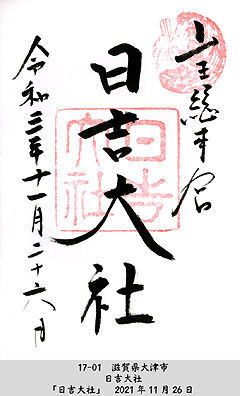 山王總本宮
日吉大社
令和三年十一月二十六日
日吉大社
17-01 滋賀県大津市
日吉大社
「日吉大社」 2021年11月26日